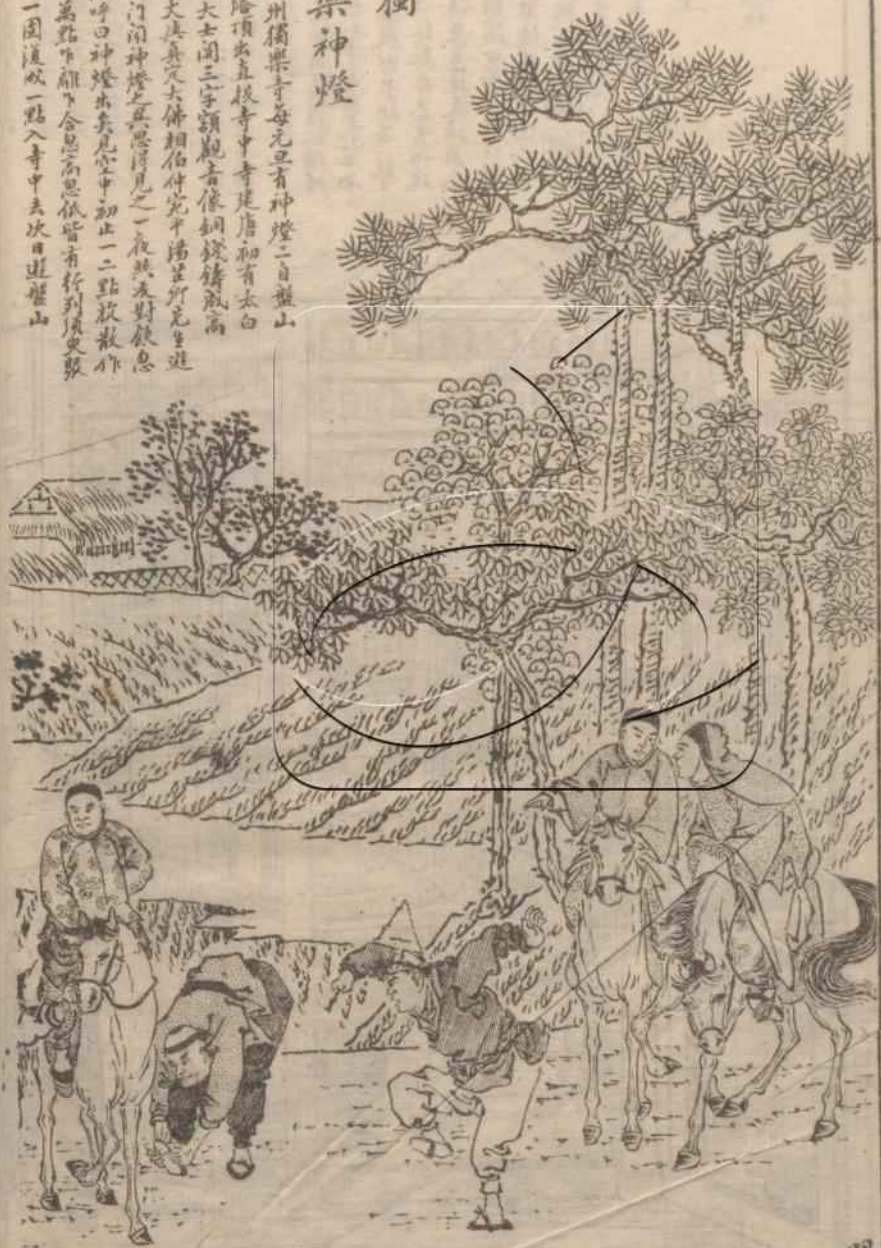 獨
樂神燈
州獨樂寺每元旦有神燈二自盤山
塔頂出直投寺中寺建唐初有太白
大士閣三字額觀音像銅鐵鑄成高
大與真定大佛相伯仲宛平湯芷卿先生遊
許聞神燈之異思得見之一夜與友對飲忽
呼曰神燈出矣見空中初止一二點放散作
萬點乍離乍合忽高忽低皆有行列須臾聚
一團復以一點入寺中去次日遊盤山